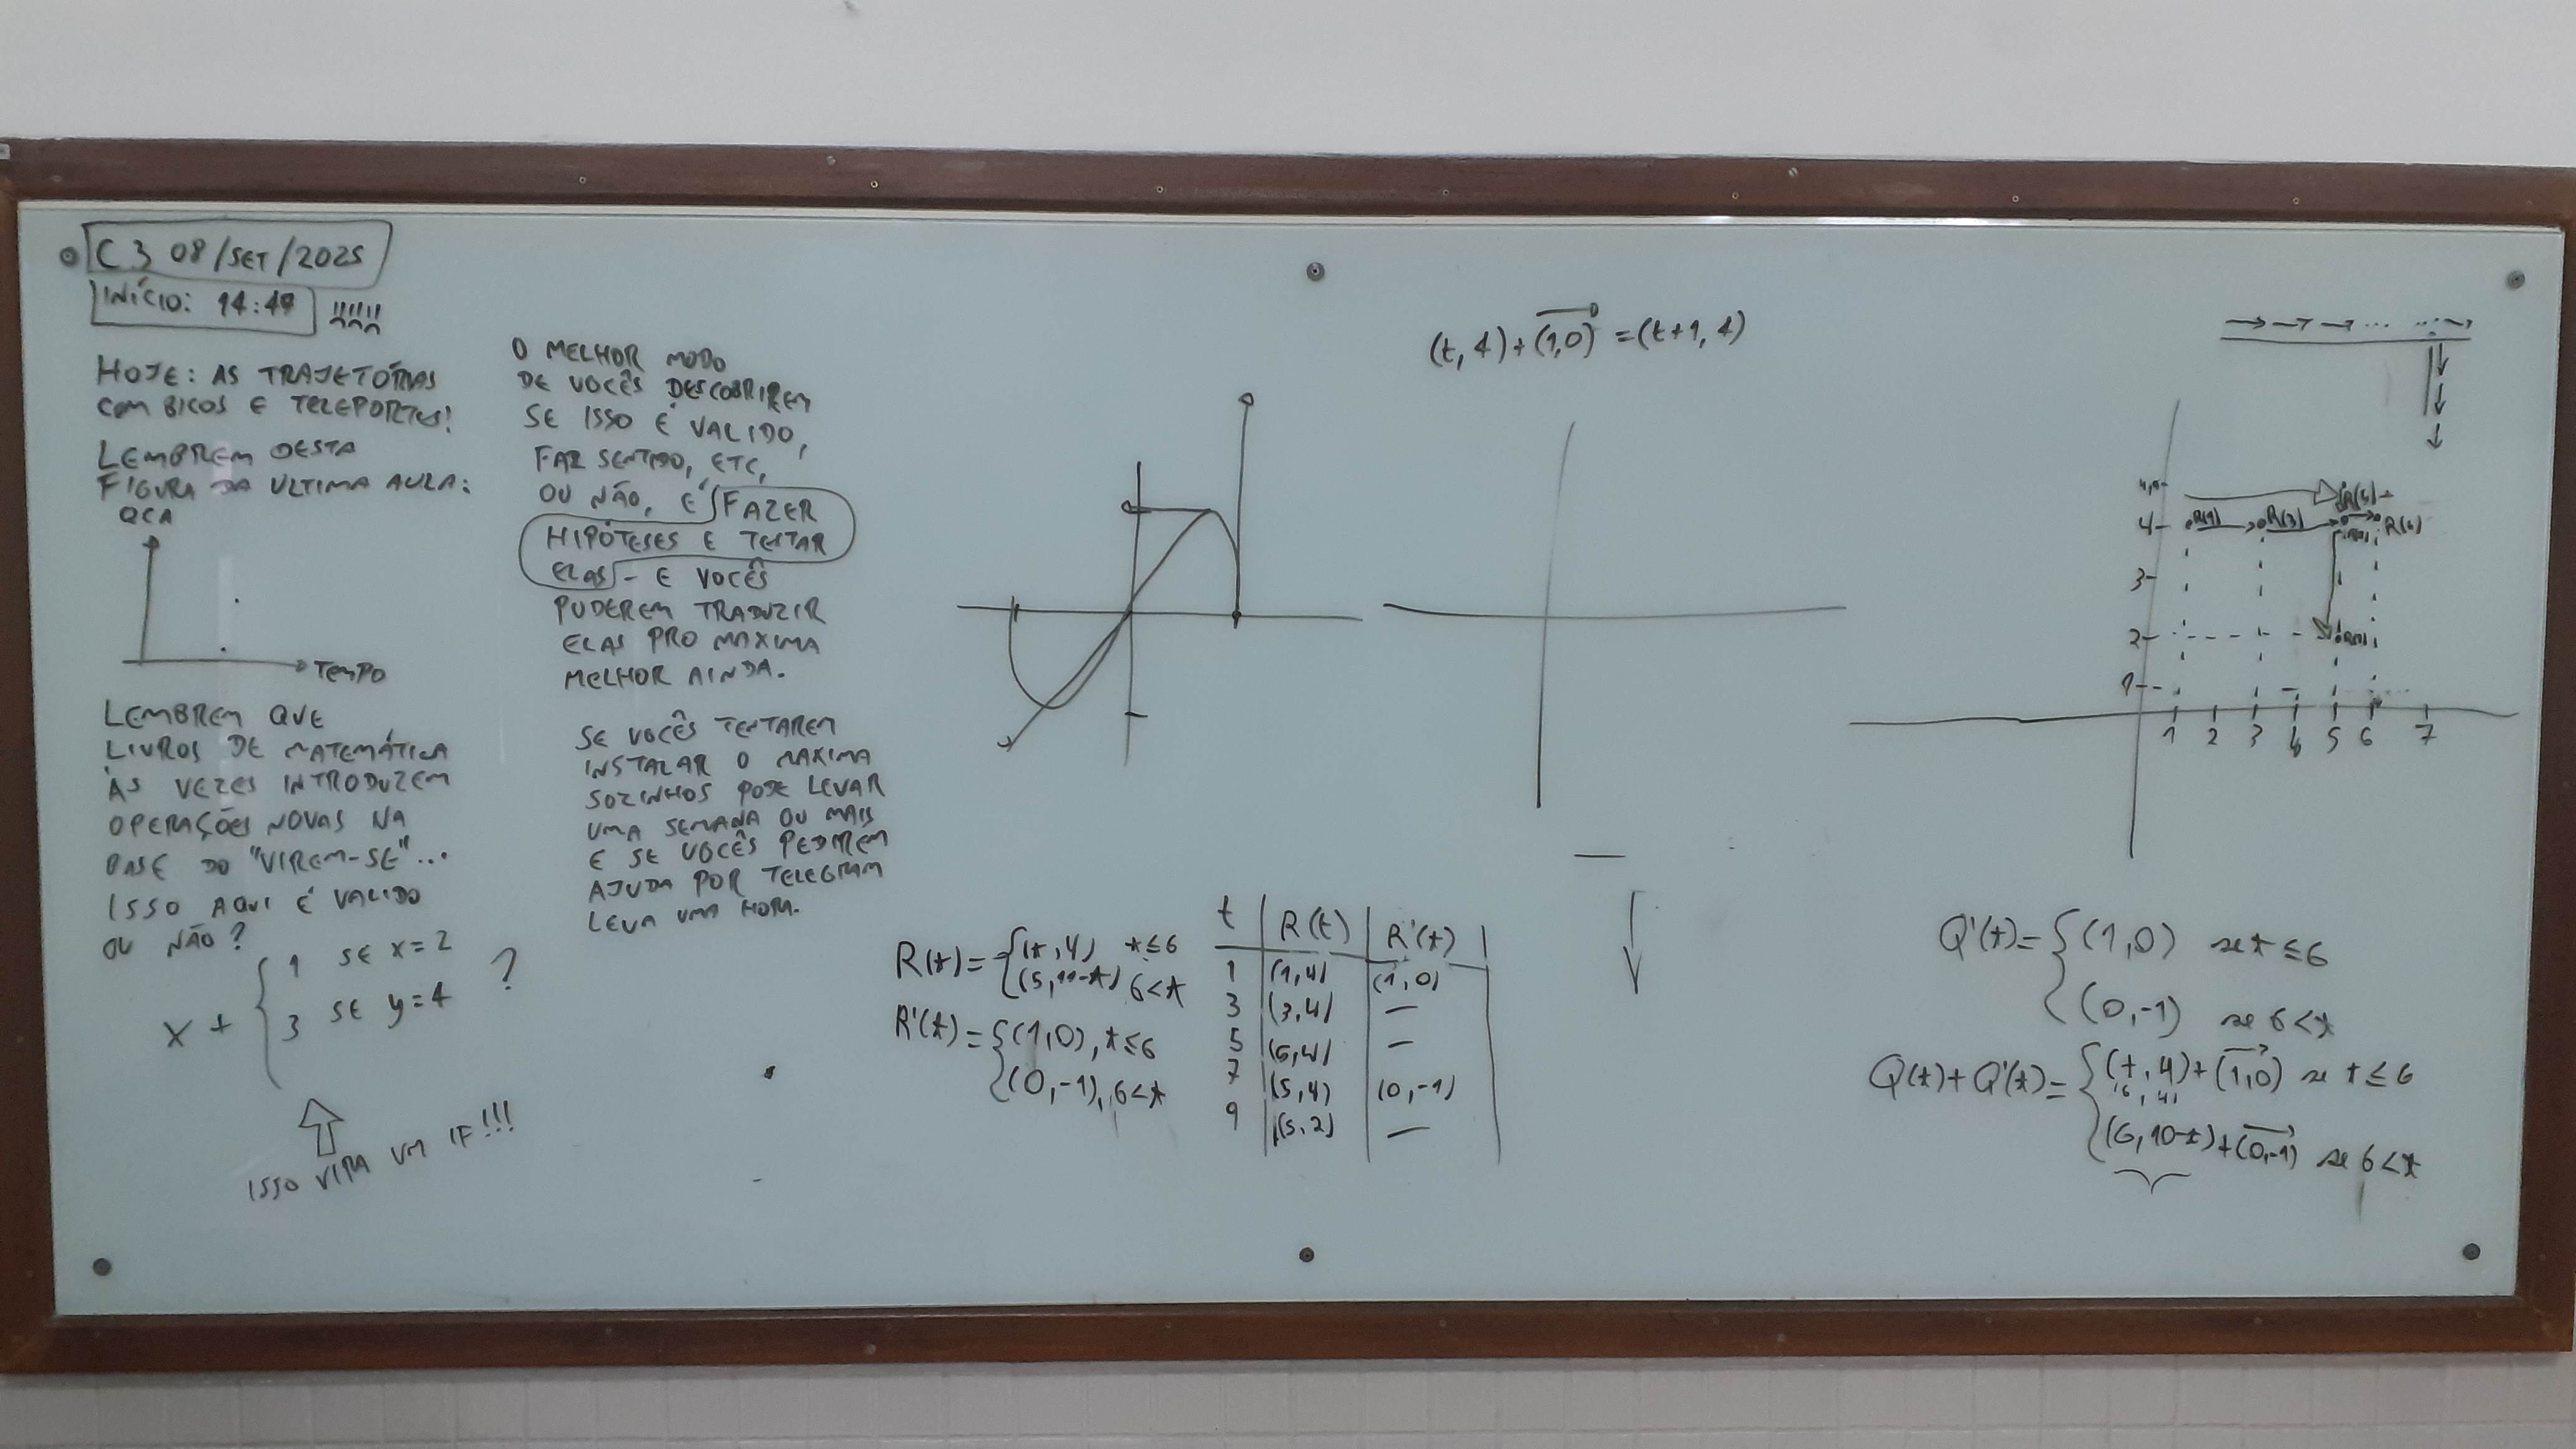 C3 08/SET/2025
INÍCIO: 14:47 !!!!!!
HOJE: AS TRAJETÓRIAS
COM BICOS E TELEPORTES!
LEMBREM DESTA
FIGURA DA ULTIMA AULA:
QCA
TEMPO
LEMBREM QUE
LIVROS DE MATEMÁTICA
ÀS VEZES INTRODUZEM
OPERAÇÕES NOVAS NA
BASE DO "VIREM-SE"...
ISSO AQUI É VALIDO
OU NÃO?
x + { 1 SE x=2
3 SE y=4 ?
ISSO VIRA UM IF!!!
O MELHOR MODO
DE VOCÊS DESCOBRIREM
SE ISSO É VALIDO,
FAZ SENTIDO, ETC,
OU NÃO, É FAZER
HIPÓTESES E TESTAR
ELAS - E VOCÊS
PUDEREM TRADUZIR
ELAS PRO MAXIMA
MELHOR AINDA.
SE VOCÊS TENTAREM
INSTALAR O MAXIMA
SOZINHOS PODE LEVAR
UMA SEMANA OU MAIS
E SE VOCÊS PEDIREM
AJUDA POR TELEGRAM
LEVA UMA HORA.
(t,4)+(1,0)=(t+1,4)
R(t)= { (t,4) t≤6
(5,11-t) 6<t
R'(t)= { (1,0), t≤6
(0,-1), 6<t
t R(t) R'(t)
1 (1,4) (1,0)
3 (3,4) —
5 (5,4) —
7 (5,4) (0,-1)
9 (5,2) —
4 R(1) R(3) R(6)
3
2
1
1 2 3 4 5 6 7
Q'(t)= { (1,0) se t≤6
(0,-1) se 6<t
Q(t)+Q'(t)= { (t,4)+(1,0) se t≤6
(6,4)
(6,10-t)+(0,-1) se 6<t